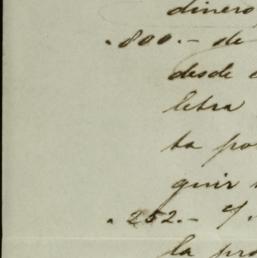 dinero
.800.- de
desde
letra
ta po
quir
. 252.- y.
la pro